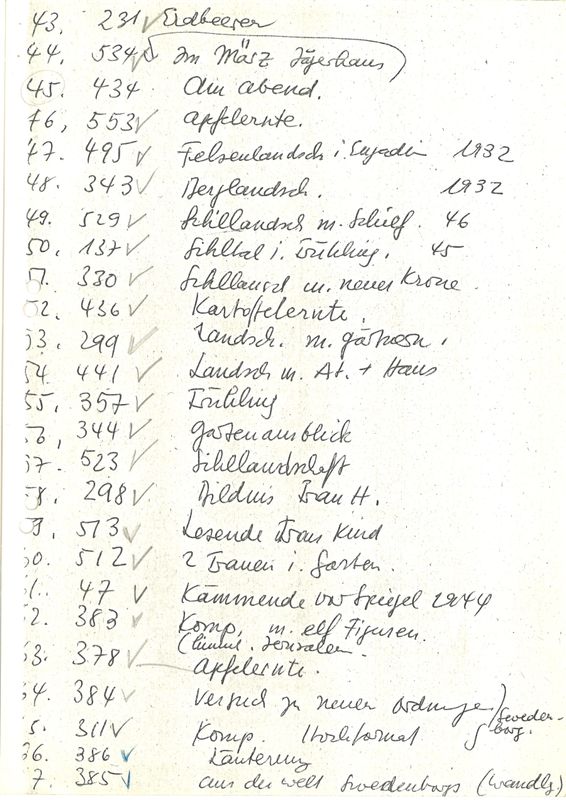 43. 231 ✓ Erdbeeren
44. 534 ✓ Im März Jägerhaus
45. 434 Am abend.
46, 553 ✓ Apfelernte.
47. 495 ✓ Felsenlandsch i. Engadin 1932
48. 343 ✓ Berglandsch. 1932
49. 529 ✓ Sihllandsch m. Schilf. 46
50. 137 ✓ Sihltal i. Frühling. 45
51. 330 ✓ Sihllandsch m. neuer Krone.
52. 436 ✓ Kartoffelernte.
53. 299 ✓ Landsch. m. gärtnern.
54. 441 ✓ Landsch m. At. + Haus
55. 357 ✓ Frühling
56, 344 ✓ Gartenausblick
57. 523 ✓ Sihllandschaft
58. 298 ✓ Bildnis Frau H.
59. 513 ✓ Lesende Frau Kind
60. 512 ✓ 2 Frauen i. Garten.
61. 47 ✓ Kämmende vor Spiegel 1944
62. 383 ✓ Komp. m. elf Figuren.
(himml. Jerusalem
63. 378 ✓ Apfelernte.
64. 384 ✓ Versuch zu neuen Ordnungen
65. 311 ✓ Komp. Hochformat } Sweden-
borg.
66. 386 ✓ Läuterung
67. 385 ✓ aus der welt Swedenborgs (wandlg.)